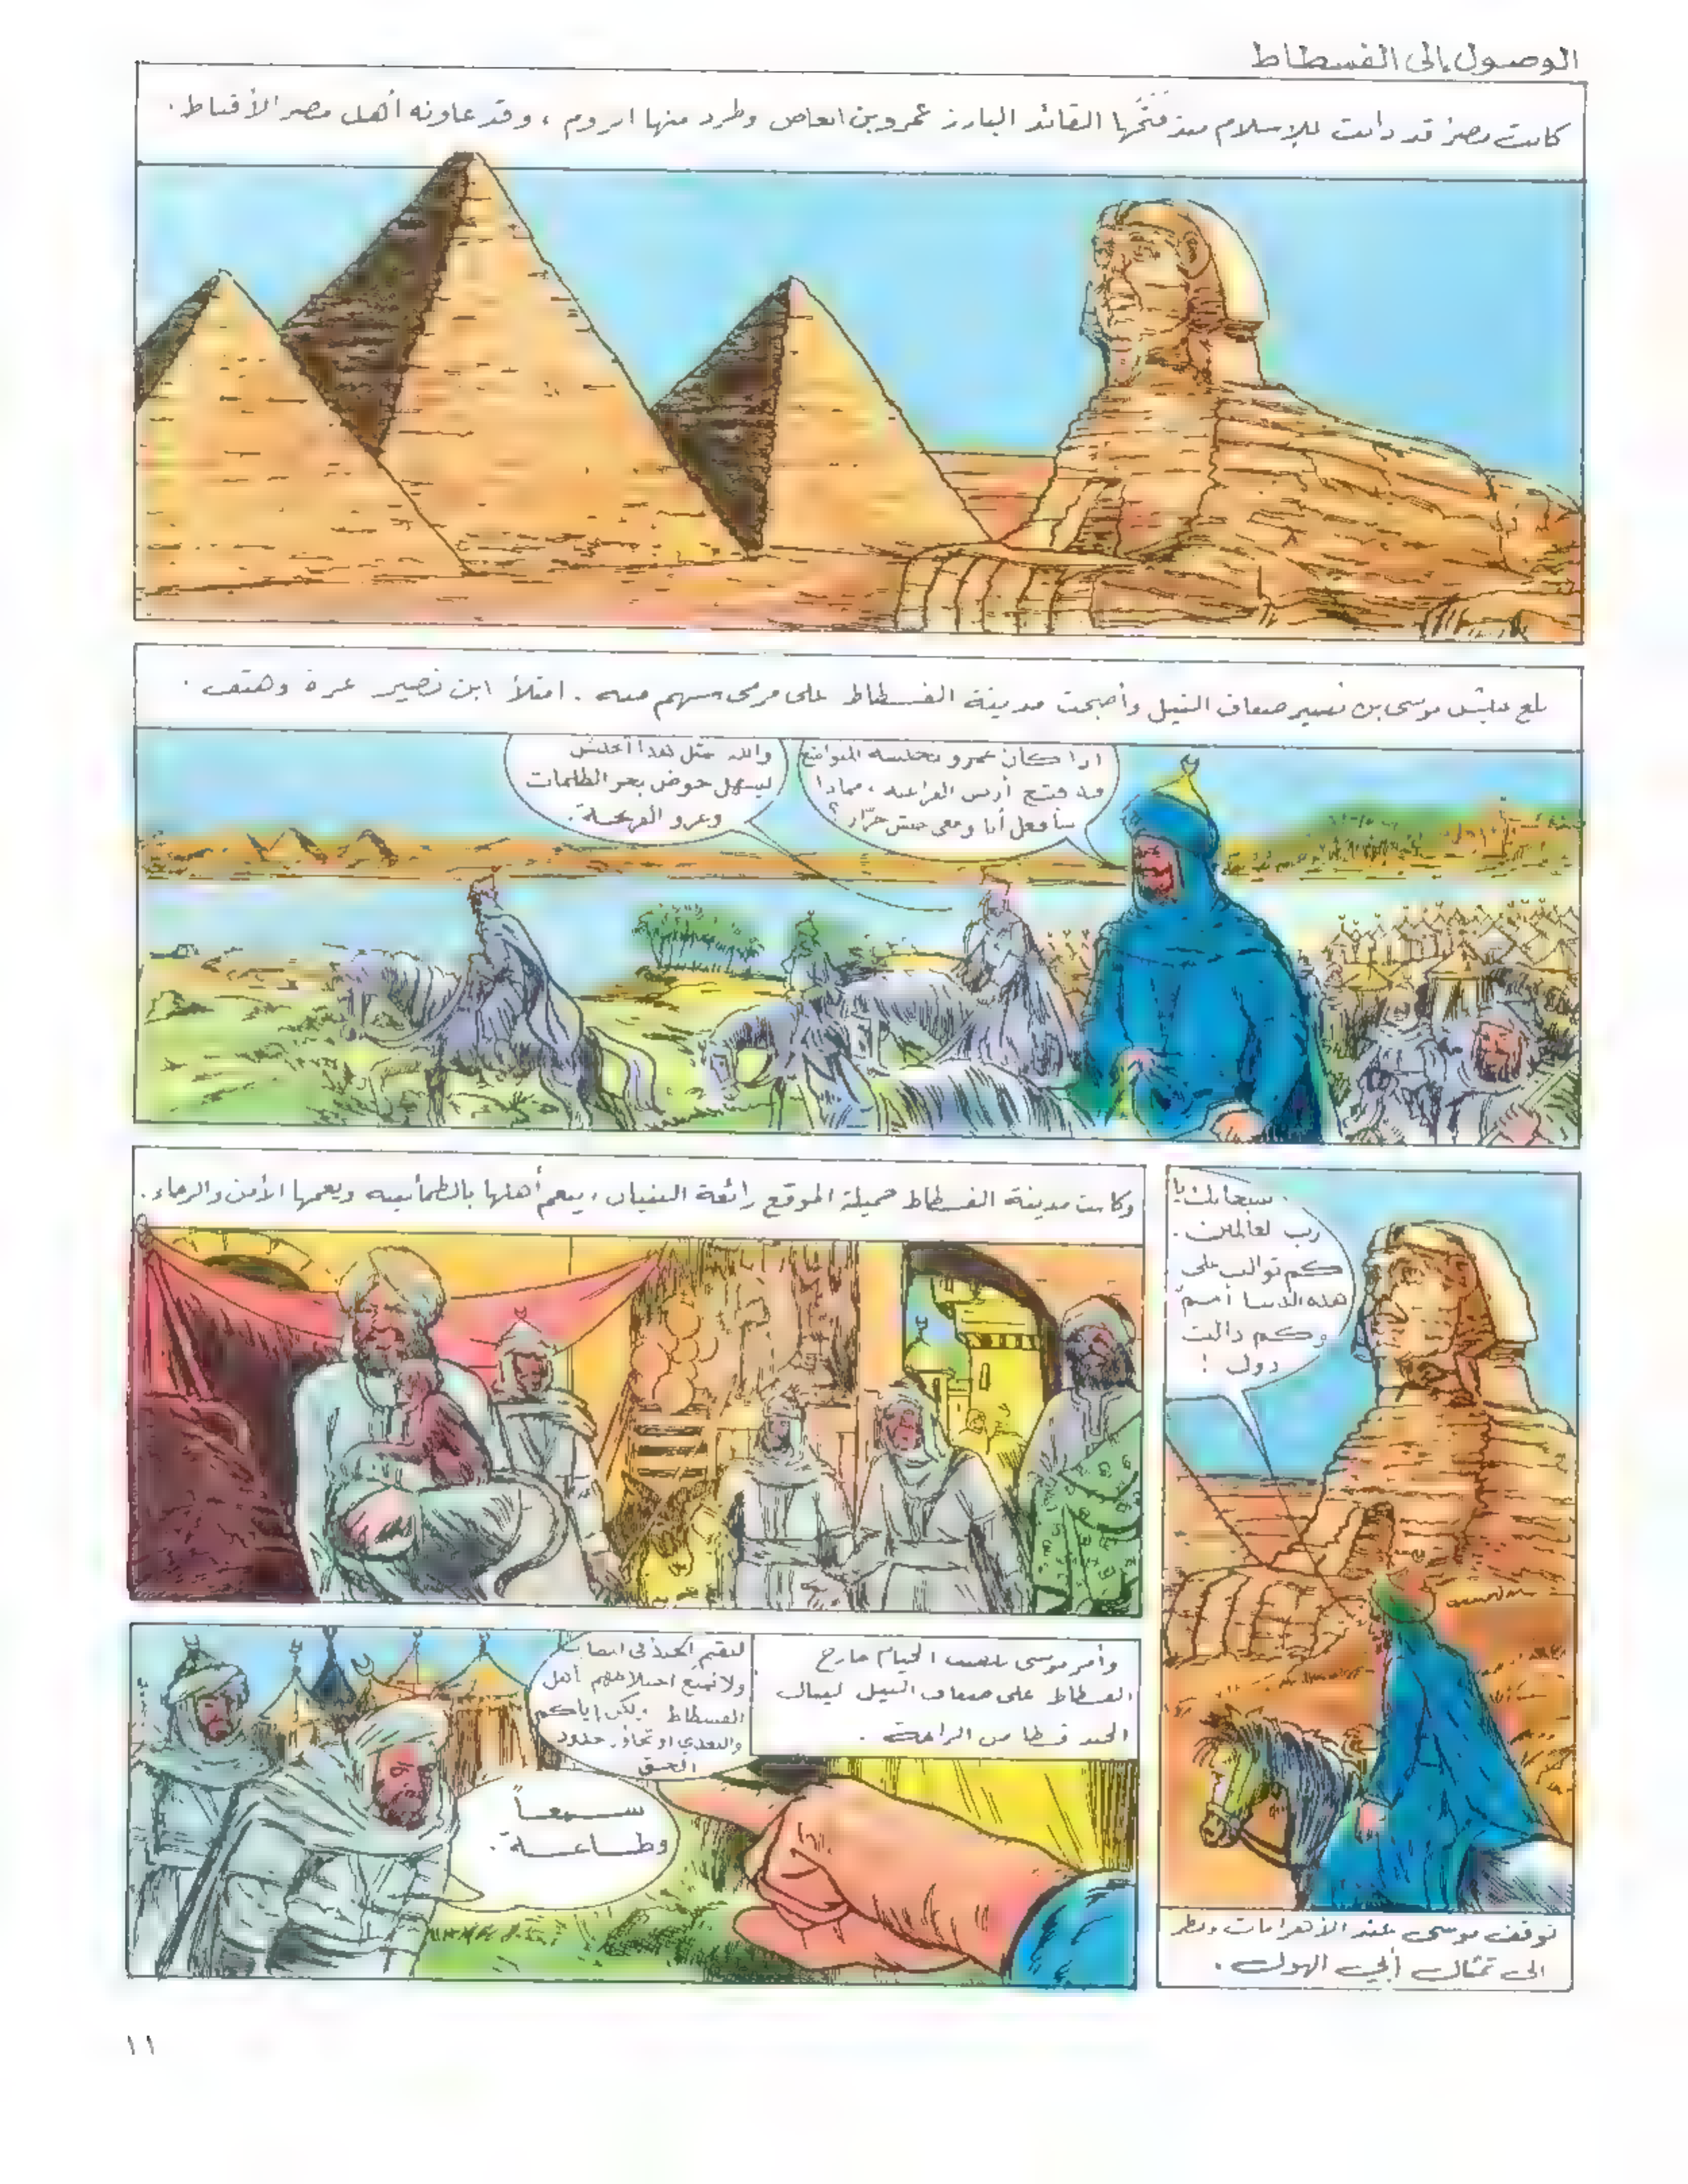 الوصول إلى الفسطاط
كانت مصر قد دانت للإسلام منذ فتحها القائد البارز عمرو بن العاص وطرد منها الروم ، وقد عاونه أهل مصر الأقباط .
بلغ جيش موسى بن نصير ضفاف النيل وأصبحت مدينة الفسطاط على مرمى سهم منه . امتلأ ابن نصير عزة وهتف .
اذا كان عمرو بجيشه المتواضع
قد فتح أرض الفراعنة ، فماذا
سأفعل أنا ومعي جيش جرّار ؟
والله بمثل هذا الجيش
ليسهل خوض بحر الظلمات
وغزو الفرنجة .
سبحانك يا
رب العالمين .
كم توالت على
هذه الدنيا أممٌ
وكم دالت
دول !
توقف موسى عند الأهرامات ونظر
الى تمثال أبي الهول .
وكانت مدينة الفسطاط جميلة الموقع رائعة البنيان ، ينعم أهلها بالطمأنينة ويعمها الأمن والرخاء .
وأمر موسى بنصب الخيام خارج
الفسطاط على ضفاف النيل لينال
الجند قسطا من الراحة .
ليقم الجند في
ولا نمنع اختلاطهم أهل
الفسطاط ولكن إياكم
والتعدي او تجاوز حدود
الحق
سـمعـاً
وطـاعـة .
١١